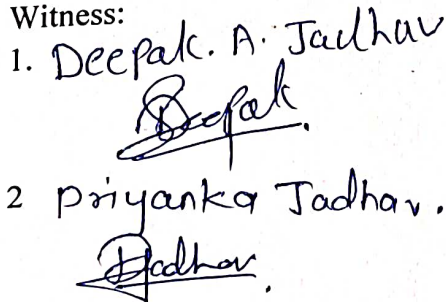 Witness:
1. Deepak. A. Jadhav
Deepak
2 Priyanka Jadhav.
Jadhav.